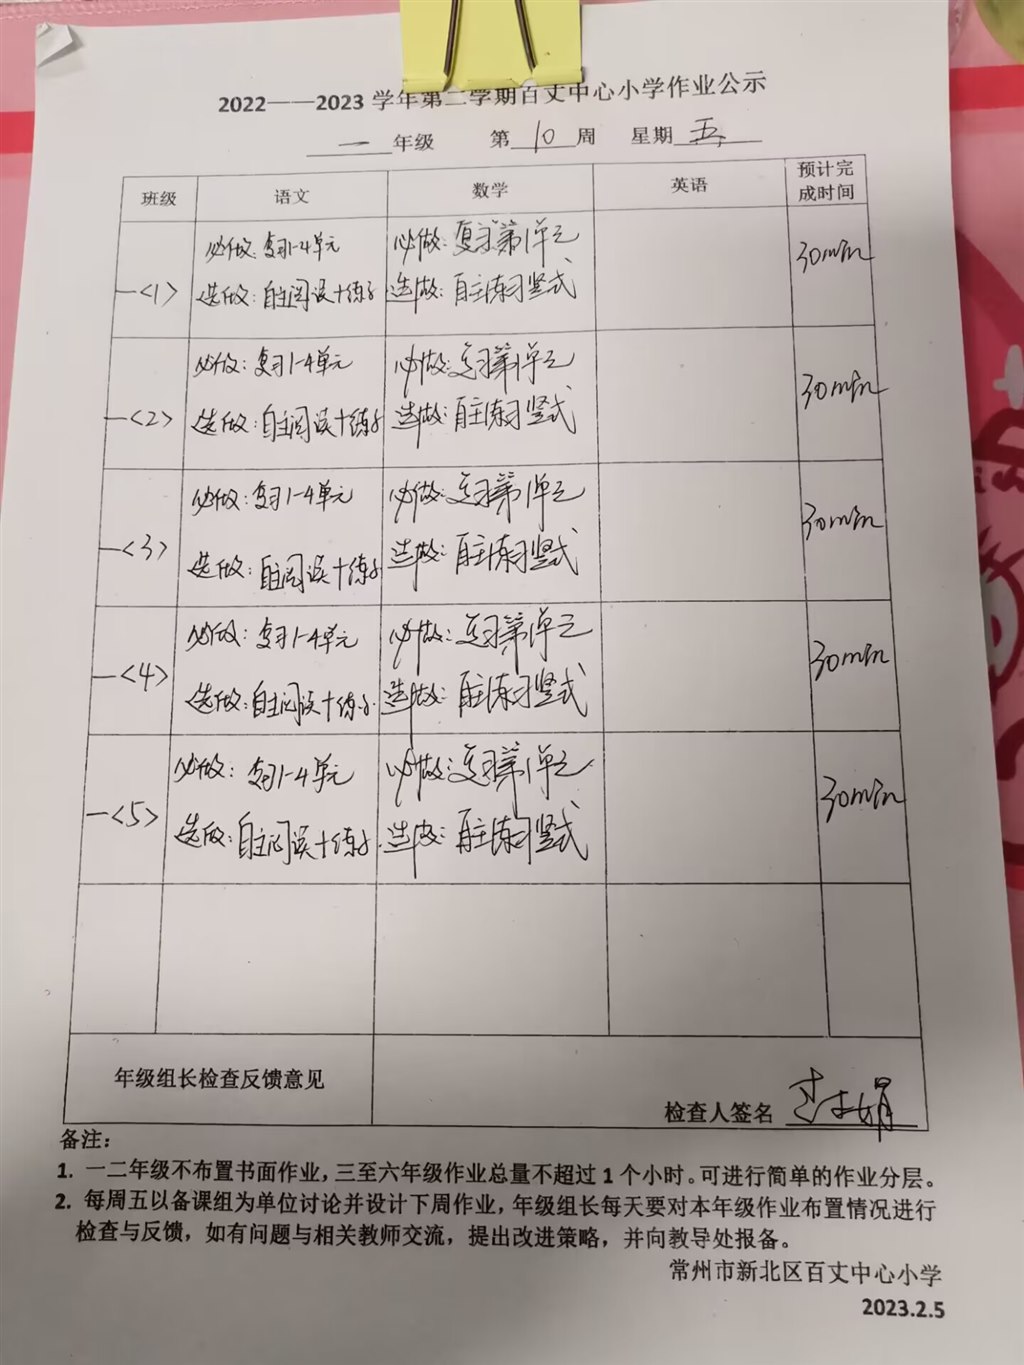 2022——2023 学年第二学期百丈中心小学作业公示
一 年级 第 10 周 星期 五
班级 语文 数学 英语 预计完成时间
必做：复习1-4单元 必做：复习第1单元 30min
一<1> 选做：自主阅读+练字 选做：自主练习竖式
必做：复习1-4单元 必做：复习第1单元 30min
一<2> 选做：自主阅读+练字 选做：自主练习竖式
必做：复习1-4单元 必做：复习第1单元 30min
一<3> 选做：自主阅读+练字 选做：自主练习竖式
必做：复习1-4单元 必做：复习第1单元 30min
一<4> 选做：自主阅读+练字 选做：自主练习竖式
必做：复习1-4单元 必做：复习第1单元 30min
一<5> 选做：自主阅读+练字 选做：自主练习竖式
年级组长检查反馈意见
检查人签名
备注：
1. 一二年级不布置书面作业，三至六年级作业总量不超过 1 个小时。可进行简单的作业分层。
2. 每周五以备课组为单位讨论并设计下周作业，年级组长每天要对本年级作业布置情况进行
检查与反馈，如有问题与相关教师交流，提出改进策略，并向教导处报备。
常州市新北区百丈中心小学
2023.2.5